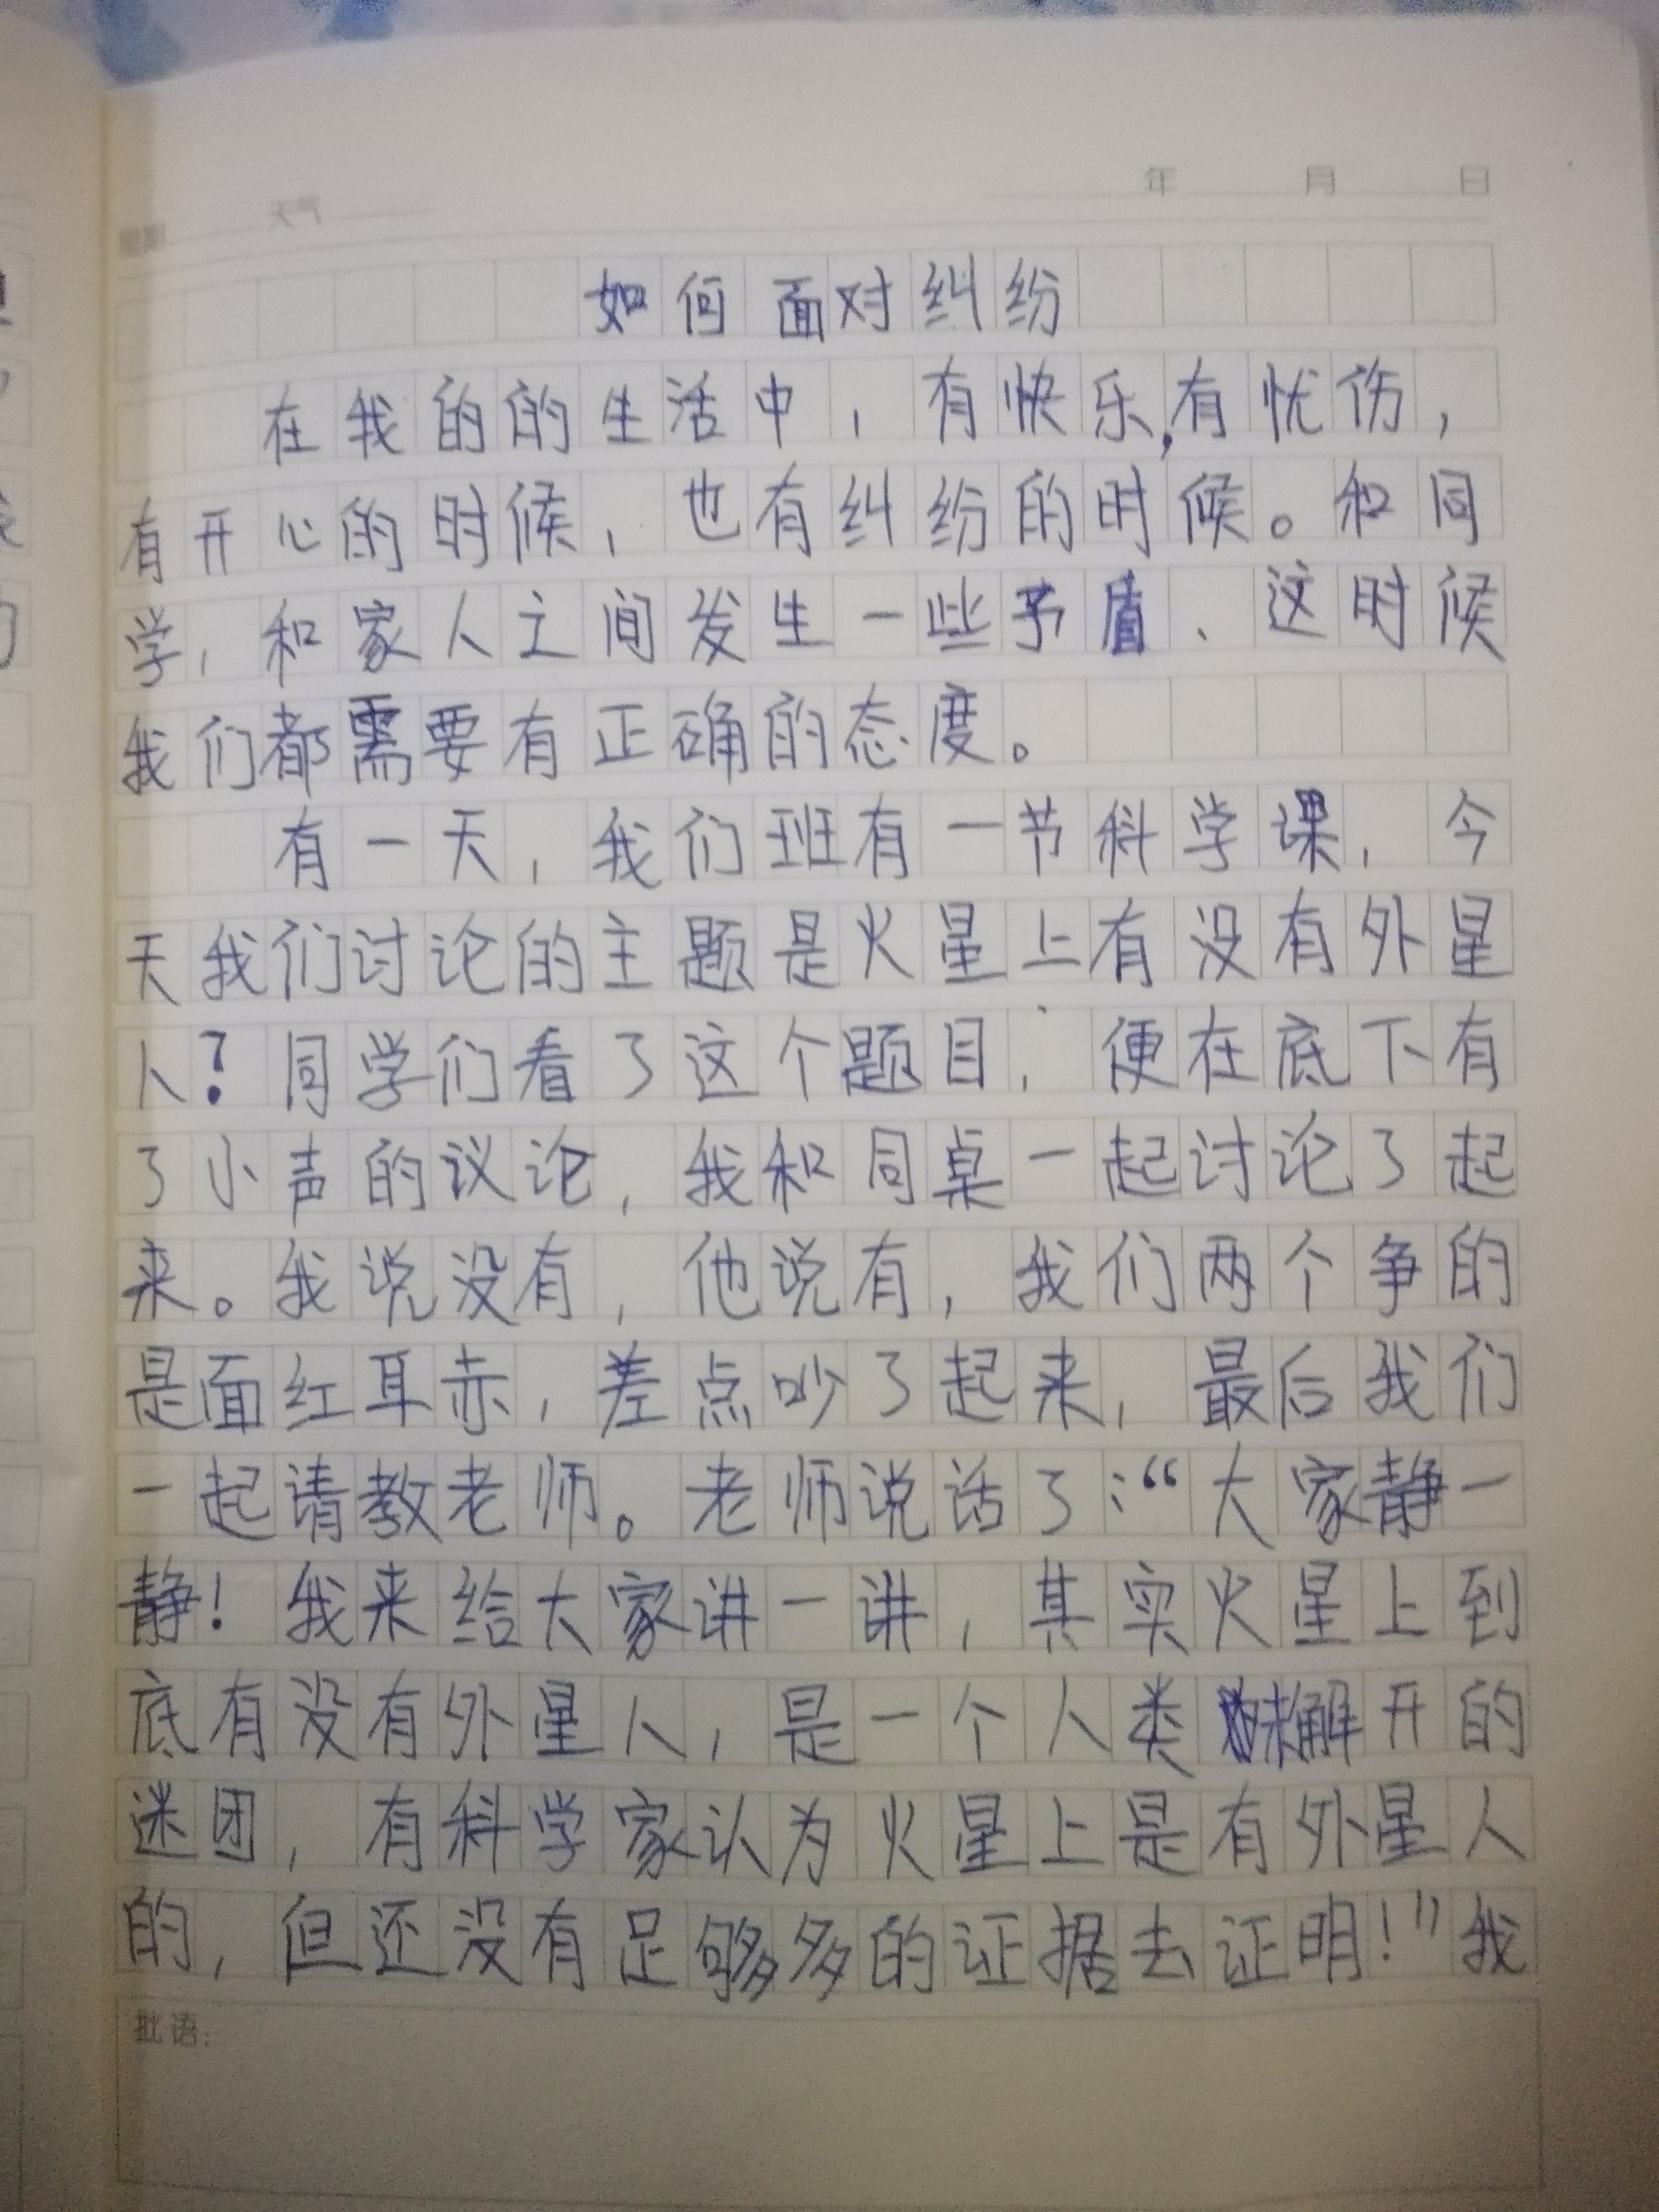 年 月 日
星期 天气
如何面对纠纷
在我的的生活中，有快乐，有忧伤，
有开心的时候，也有纠纷的时候。和同
学，和家人之间发生一些予盾、这时候
我们都需要有正确的态度。
有一天，我们班有一节科学课，今
天我们讨论的主题是火星上有没有外星
人？同学们看了这个题目，便在底下有
了小声的议论，我和同桌一起讨论了起
来。我说没有，他说有，我们两个争的
是面红耳赤，差点吵了起来，最后我们
一起请教老师。老师说话了：“大家静一
静！我来给大家讲一讲，其实火星上到
底有没有外星人，是一个人类未解开的
迷团，有科学家认为火星上是有外星人
的，但还没有足够多的证据去证明！”我
批语：